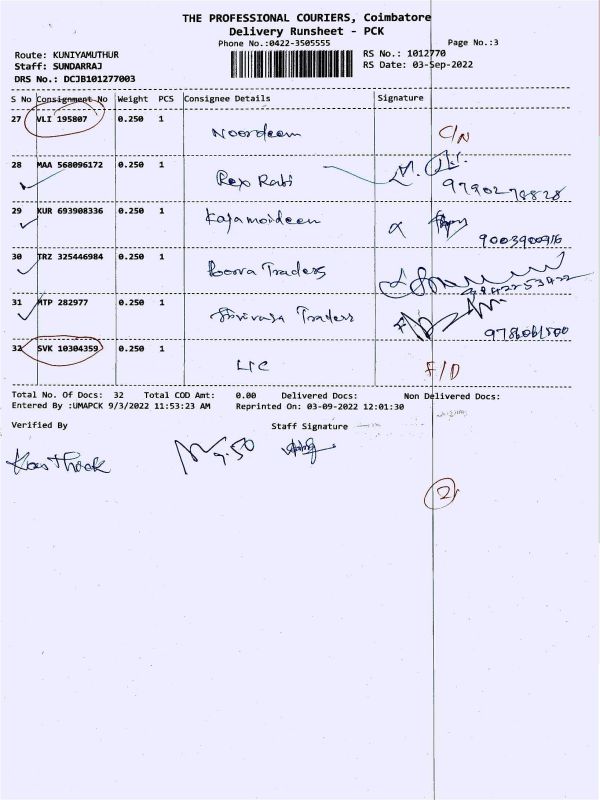 THE PROFESSIONAL COURIERS, Coimbatore
Delivery Runsheet - PCK
Phone No.:0422-3505555
Page No.:3
Route: KUNIYAMUTHUR
RS No.: 1012770
Staff: SUNDARRAJ
RS Date: 03-Sep-2022
DRS No.: DCJB101277003
S No Consignment No Weight PCS Consignee Details Signature
27 VLI 195807 0.250 1 Noordeem C/N
28 MAA 568096172 0.250 1 Rex Rabi
9790278828
29 KUR 693908336 0.250 1 Kajamoideen
9003900916
30 TRZ 325446984 0.250 1 Poorva Traders
31 MTP 282977 0.250 1 Shrivasa Traders
9786061500
32 SVK 10304359 0.250 1 LIC F/D
Total No. Of Docs: 32 Total COD Amt: 0.00 Delivered Docs: Non Delivered Docs:
Entered By :UMAPCK 9/3/2022 11:53:23 AM Reprinted On: 03-09-2022 12:01:30
Verified By Staff Signature
9.50
2